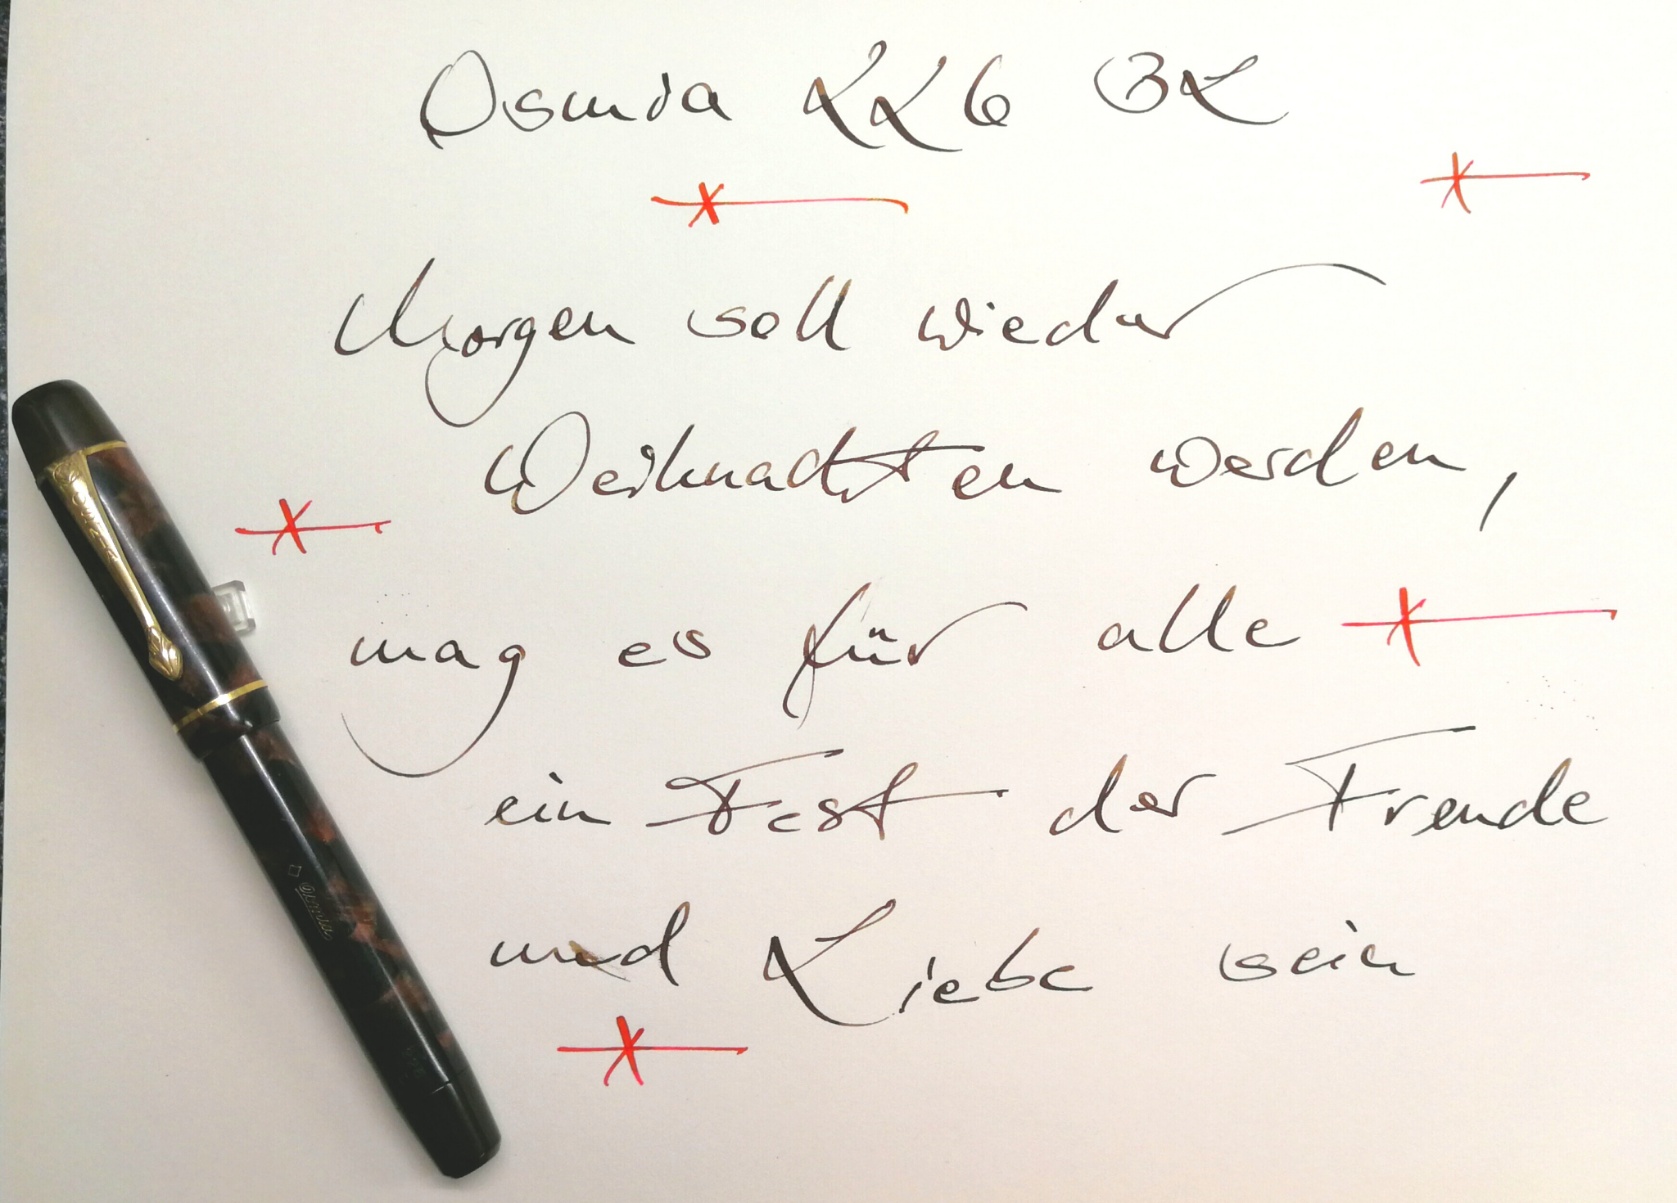 Osmia 226 BL
Morgen soll wieder
Weihnachten werden,
mag es für alle
ein Fest der Freude
und Liebe sein
Osmia